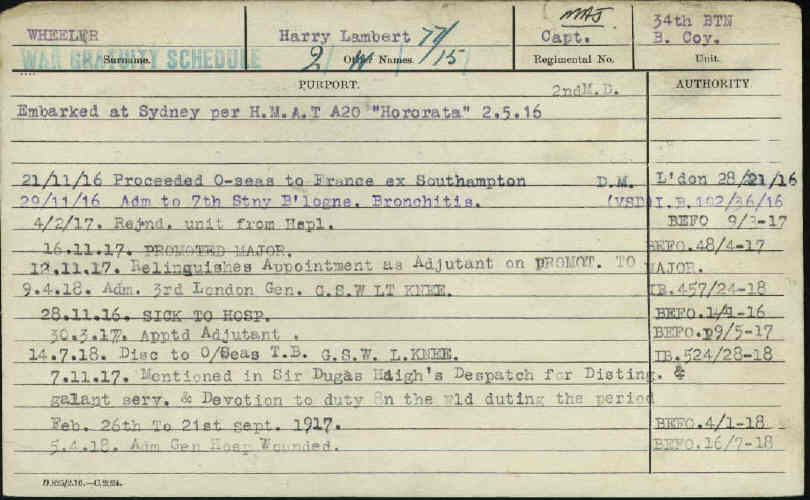 WHEELER Harry Lambert 77/15 MAJ Capt. 34th BTN
WAR GRATUITY SCHEDULE B. Coy.
Surname. Other Names. Regimental No. Unit.
PURPORT. 2ndM.D. AUTHORITY
Embarked at Sydney per H.M.A.T A20 "Hororata" 2.5.16
21/11/16 Proceeded O-seas to France ex Southampton D.M. L'don 28/21/16
29/11/16 Adm to 7th Stny B'logne. Bronchitis. (VSD)I.B.102/36/16
4/2/17. Rejnd. unit from Hspl. BEFO 9/3-17
16.11.17. PROMOTED MAJOR. BEFO.48/4-17
12.11.17. Relinguishes Appointment as Adjutant on PROMOT. TO MAJOR.
9.4.18. Adm. 3rd London Gen. G.S.W LT KNEE. IB.457/24-18
28.11.16. SICK TO HOSP. BEFO.1/1-16
30.3.17. Apptd Adjutant . BEFO.19/5-17
14.7.18. Disc to O/Seas T.B. G.S.W. L.KNEE. IB.524/28-18
7.11.17. Mentioned in Sir Dugas Haigh's Despatch for Disting. &
galant serv. & Devotion to duty 8n the wld duting the period
Feb. 26th To 21st sept. 1917. BEFO.4/1-18
5.4.18. Adm Gen Hosp Wounded. BEFO.16/7-18